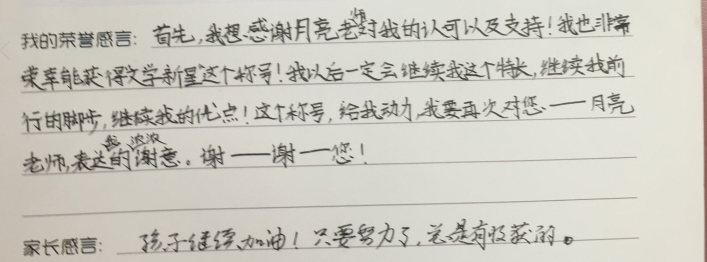 我的荣誉感言：首先，我想感谢月亮老师对我的认可以及支持！我也非常
荣幸能获得文学新星这个称号！我以后一定会继续我这个特长，继续我前
行的脚步，继续我的优点！这个称号，给我动力，我要再次对您——月亮
老师，表达我浓浓的谢意。谢——谢——您！
家长感言：孩子继续加油！只要努力了，总是有收获的。